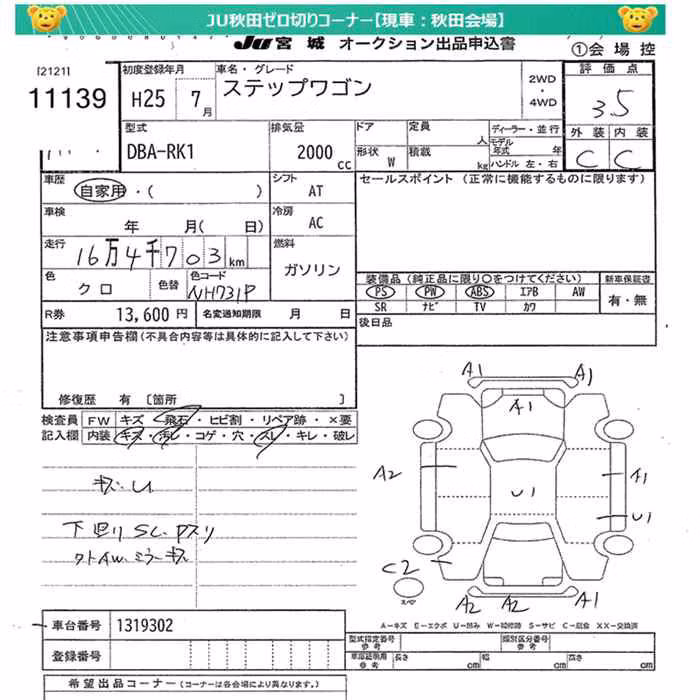 JU秋田ゼロ切りコーナー【現車：秋田会場】
JU 宮城 オークション出品申込書
①会場控
[2121]
11139
初度登録年月
H25 7月
車名・グレード
ステップワゴン
2WD
・
4WD
評価点
3.5
外装 内装
C C
型式
DBA-RK1
排気量
2000 cc
ドア
形状 W
定員 人
積載 kg
ディーラー・並行
モデル年式 年
ハンドル 左・右
車歴
自家用・( )
シフト
AT
セールスポイント (正常に機能するものに限ります)
車検
年 月( 日)
冷房
AC
走行
16万4千703km
燃料
ガソリン
色
クロ
色替
色コード
NH731P
装備品 (純正品に限り○をつけてください)
PS PW ABS エアB AW
SR ナビ TV カワ
新車保証書
有・無
R券 13,600 円
名変通知期限 月 日
後日品
注意事項申告欄 (不具合内容等は具体的に記入して下さい)
修復歴 有 [箇所 ]
検査員記入欄
FW キズ・飛石・ヒビ割・リペア跡・×要
内装 キズ・汚レ・コゲ・穴・スレ・キレ・破レ
キズ・U
下回りSC.
ミラーキズ
A1 A1
A1
A2 A1
U1 U1
C2
スペア
A2 A2 A1
A－キズ E－エクボ U－凹み W－補修跡 S－サビ C－腐食 XX－交換済
車台番号 1319302
登録番号
型式指定番号 参考
類別区分番号 参考
車庫証明用 参考
長さ cm 幅 cm 高さ cm
希望出品コーナー (コーナーは各会場により異なります。)